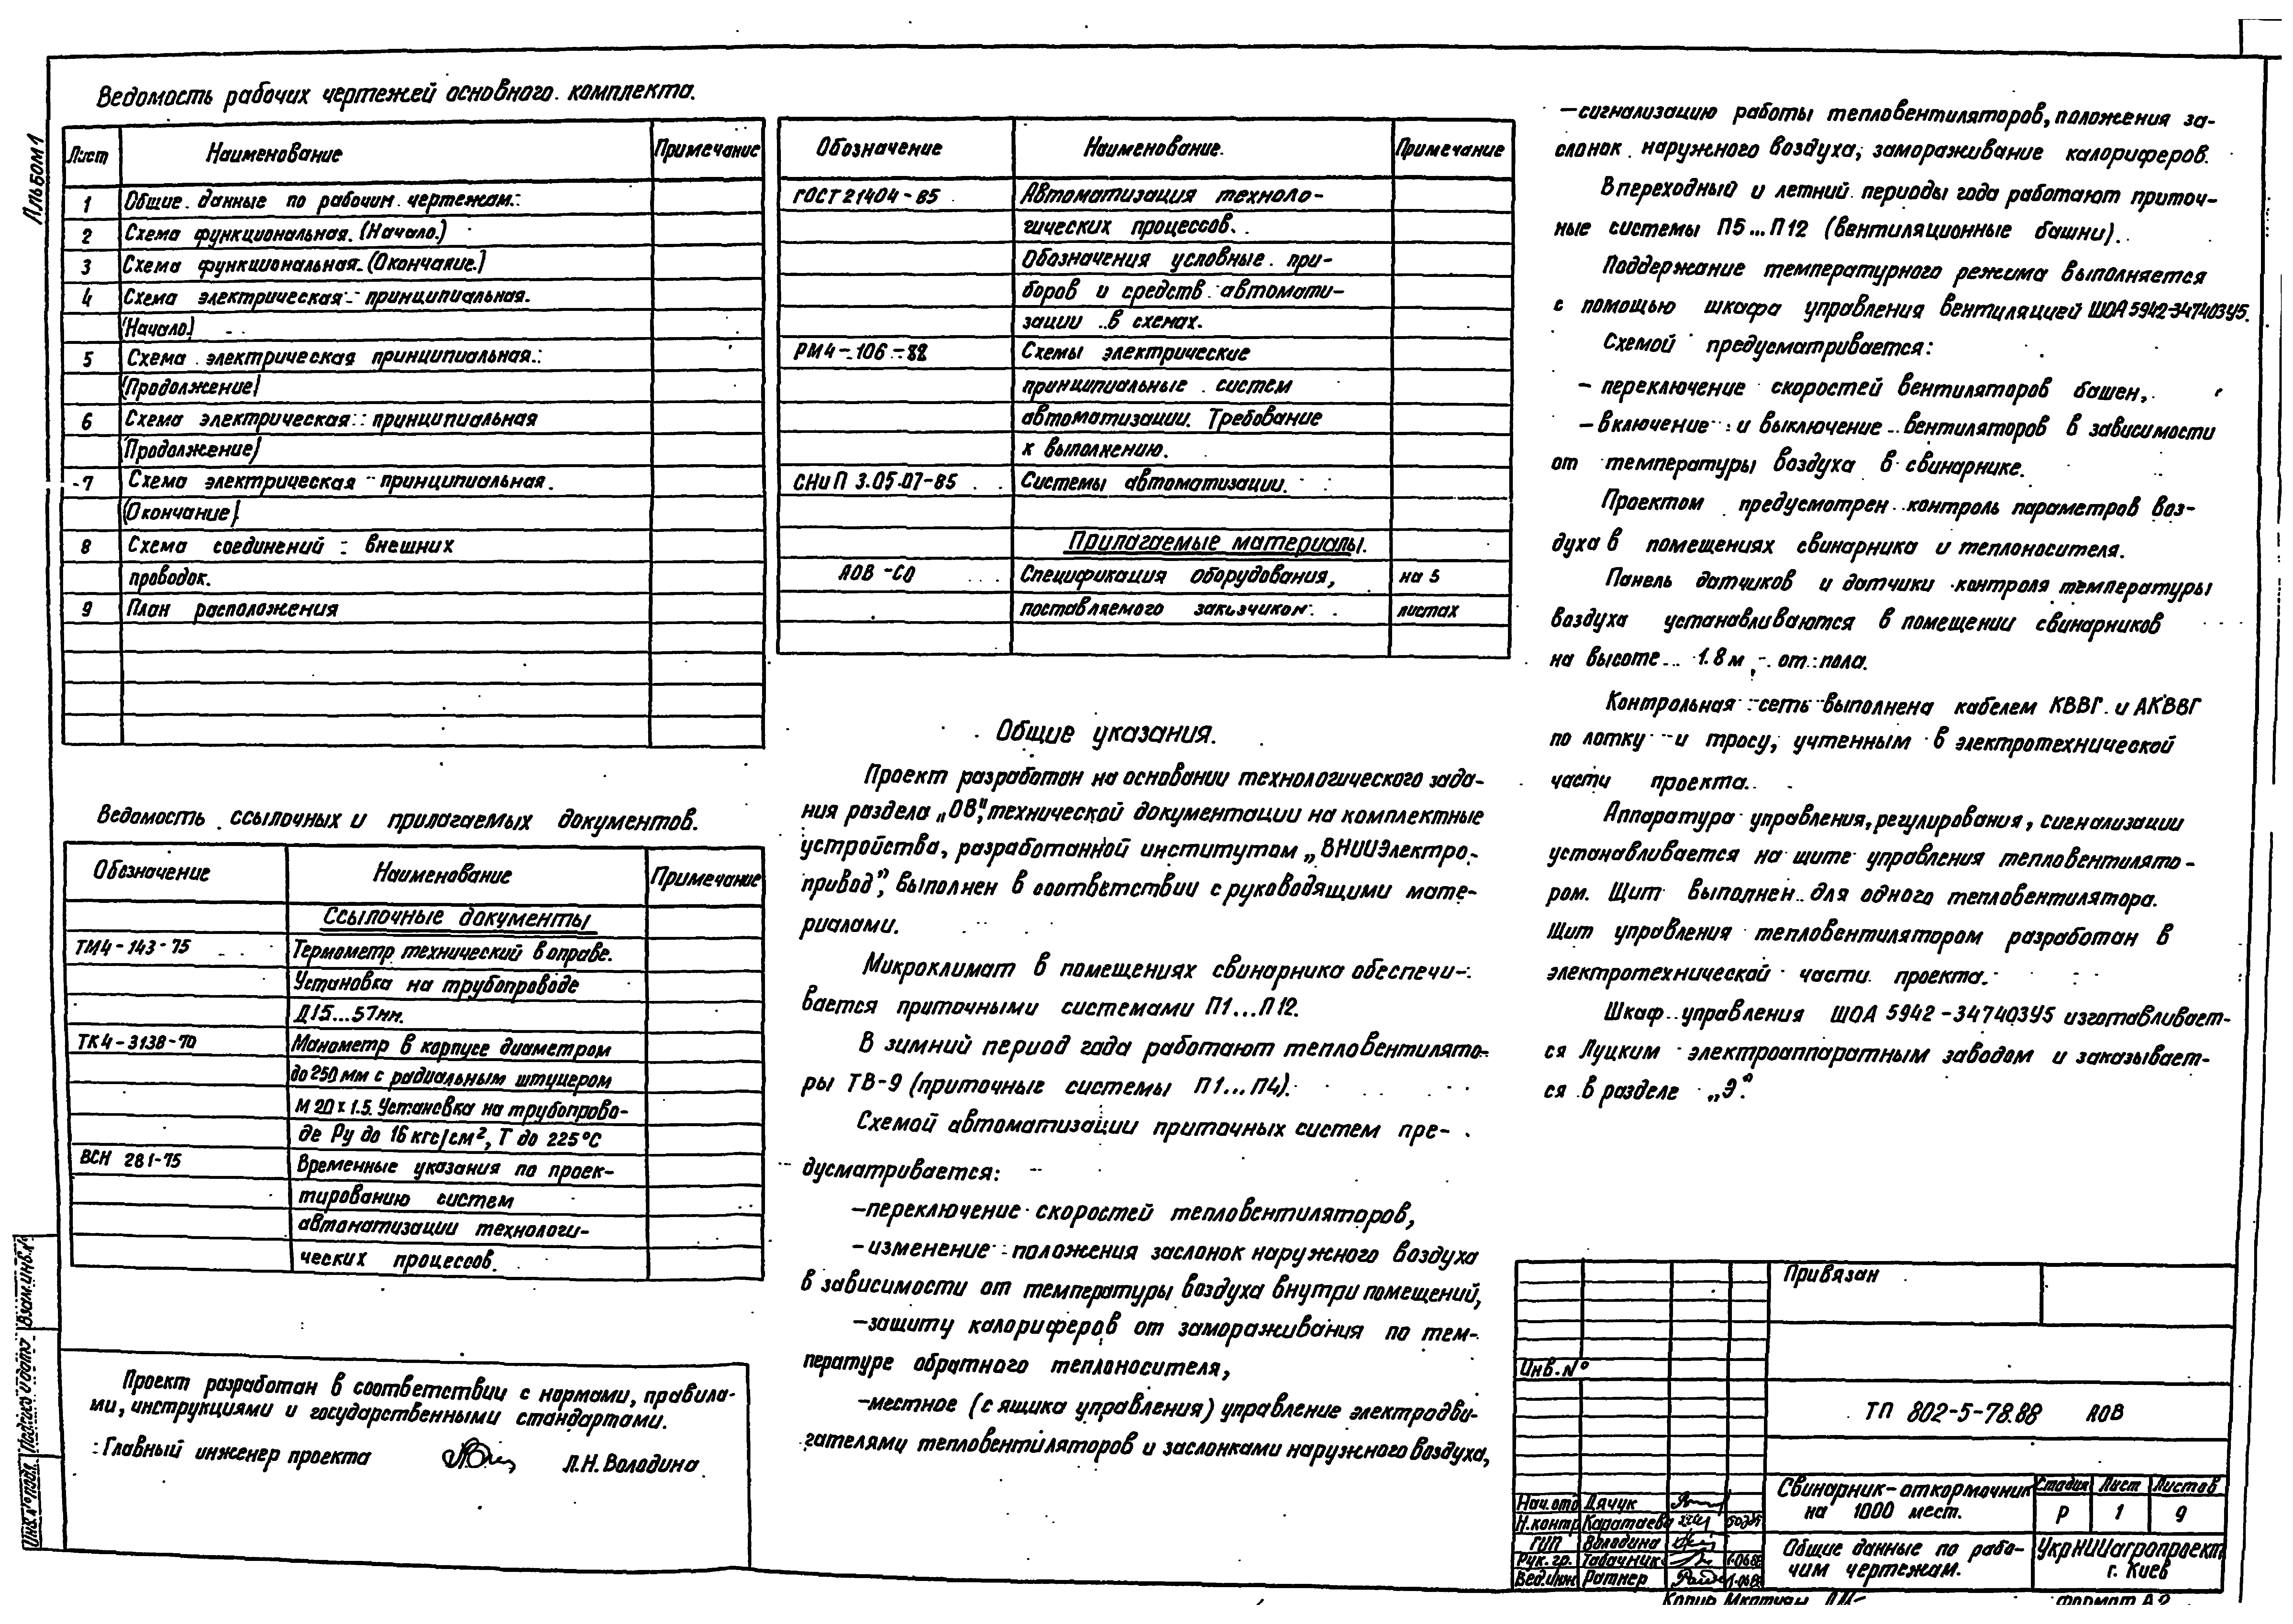 Альбом 1
Ведомость рабочих чертежей основного комплекта.
Лист Наименование Примечание
1 Общие данные по рабочим чертежам.
2 Схема функциональная. (Начало.)
3 Схема функциональная. (Окончание.)
4 Схема электрическая принципиальная.
(Начало)
5 Схема электрическая принципиальная.
(Продолжение)
6 Схема электрическая принципиальная
(Продолжение)
7 Схема электрическая принципиальная.
(Окончание)
8 Схема соединений внешних
проводок.
9 План расположения
Ведомость ссылочных и прилагаемых документов.
Обозначение Наименование Примечание
Ссылочные документы
ТМ4-143-75 Термометр технический в оправе.
Установка на трубопроводе
Д15...57мм.
ТК4-3138-70 Манометр в корпусе диаметром
до 250 мм с радиальным штуцером
М 20 х 1.5. Установка на трубопрово-
де Ру до 16 кгс/см², Т до 225°С
ВСН 281-75 Временные указания по проек-
тированию систем
автоматизации технологи-
ческих процессов.
Проект разработан в соответствии с нормами, правила-
ми, инструкциями и государственными стандартами.
Главный инженер проекта Л.Н. Володина
Обозначение Наименование. Примечание
ГОСТ 21404-85 Автоматизация техноло-
гических процессов.
Обозначения условные при-
боров и средств автомати-
зации в схемах.
РМ4-106-82 Схемы электрические
принципиальные систем
автоматизации. Требование
к выполнению.
СНиП 3.05.07-85 Системы автоматизации.
Прилагаемые материалы.
АОВ-СО Спецификация оборудования, на 5
поставляемого заказчиком листах
Общие указания.
Проект разработан на основании технологического зада-
ния раздела „ОВ“, технической документации на комплектные
устройства, разработанной институтом „ВНИИЭлектро-
привод“, выполнен в соответствии с руководящими мате-
риалами.
Микроклимат в помещениях свинарника обеспечи-
вается приточными системами П1...П12.
В зимний период года работают тепловентилято-
ры ТВ-9 (приточные системы П1...П4).
Схемой автоматизации приточных систем пре-
дусматривается:
-переключение скоростей тепловентиляторов,
-изменение положения заслонок наружного воздуха
в зависимости от температуры воздуха внутри помещений,
-защиту калориферов от замораживания по тем-
пературе обратного теплоносителя,
-местное (с ящика управления) управление электродви-
гателями тепловентиляторов и заслонками наружного воздуха,
-сигнализацию работы тепловентиляторов, положения за-
слонок наружного воздуха, замораживание калориферов.
В переходный и летний периоды года работают приточ-
ные системы П5...П12 (вентиляционные башни).
Поддержание температурного режима выполняется
с помощью шкафа управления вентиляцией ШОА 5942-3474039У5.
Схемой предусматривается:
- переключение скоростей вентиляторов башен,
-включение и выключение вентиляторов в зависимости
от температуры воздуха в свинарнике.
Проектом предусмотрен контроль параметров воз-
духа в помещениях свинарника и теплоносителя.
Панель датчиков и датчики контроля температуры
воздуха устанавливаются в помещении свинарников
на высоте 1.8 м от пола.
Контрольная сеть выполнена кабелем КВВГ и АКВВГ
по лотку и тросу, учтенным в электротехнической
части проекта.
Аппаратура управления, регулирования, сигнализации
устанавливается на щите управления тепловентилято-
ром. Щит выполнен для одного тепловентилятора.
Щит управления тепловентилятором разработан в
электротехнической части проекта.
Шкаф управления ШОА 5942-347403У5 изготавливает-
ся Луцким электроаппаратным заводом и заказывает-
ся в разделе „Э“.
Привязан
Инв.№
ТП 802-5-78.88 АОВ
Свинарник-откормочник
на 1000 мест.
Стадия Лист Листов
Р 1 9
Общие данные по рабо-
чим чертежам.
УкрНИИагропроект
г. Киев
Нач.отд Дячук
Н.контр Каратаева
ГИП Володина
Рук. гр. Табачник
Вед.инж Ратнер
Взам.инв.№
Подпись и дата
Инв.№ подл.
Формат А2